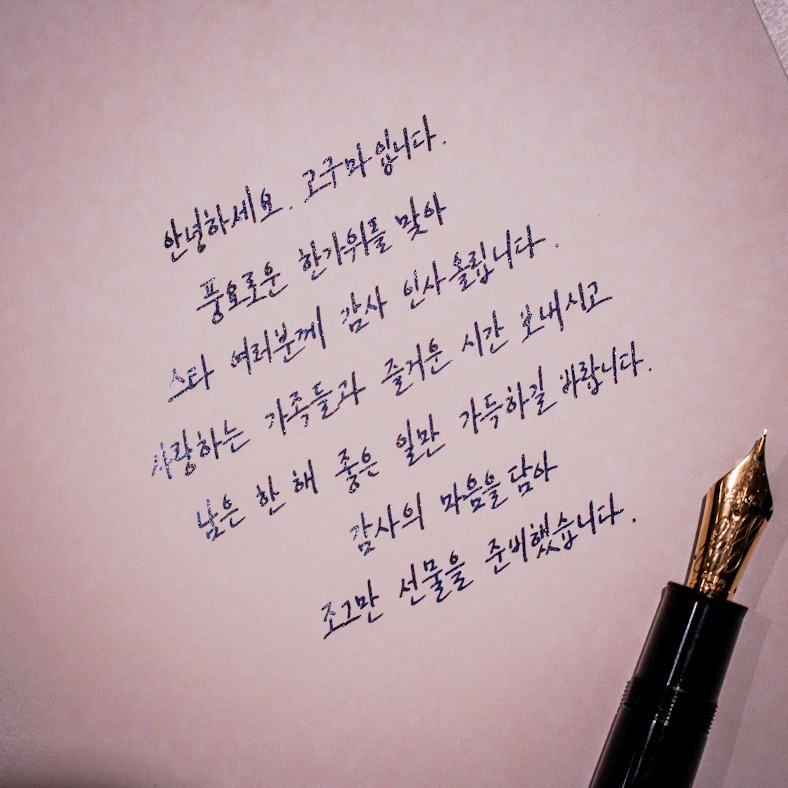 안녕하세요. 고구마입니다.
풍요로운 한가위를 맞아
스타 여러분께 감사 인사 올립니다.
사랑하는 가족들과 즐거운 시간 보내시고
남은 한 해 좋은 일만 가득하길 바랍니다.
감사의 마음을 담아
조그만 선물을 준비했습니다.